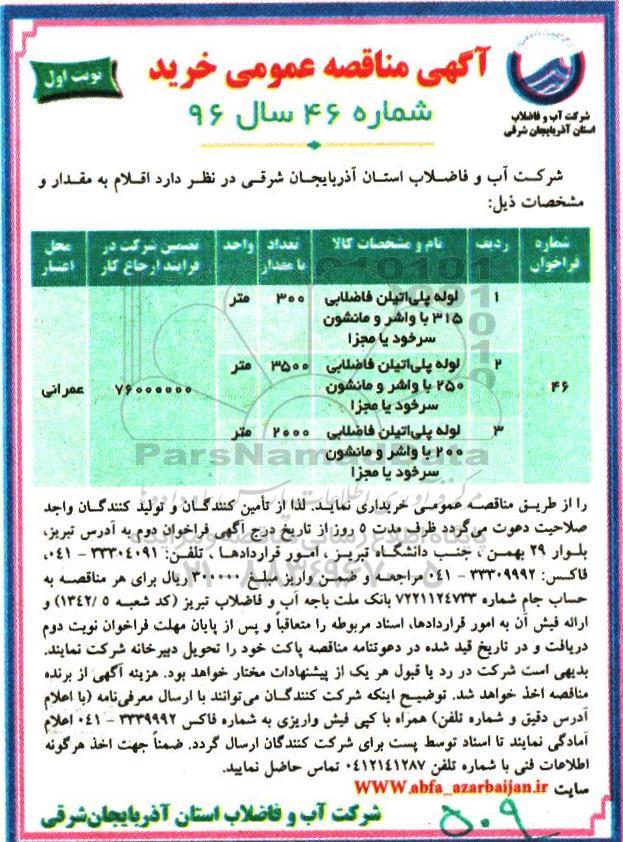 آگهی مناقصه عمومی خرید
شماره ۴۶ سال ۹۶
نوبت اول
شرکت آب و فاضلاب
استان آذربایجان شرقی
شرکت آب و فاضلاب استان آذربایجان شرقی در نظر دارد اقلام به مقدار و
مشخصات ذیل:
شماره فراخوان ردیف نام و مشخصات کالا تعداد یا مقدار واحد تضمین شرکت در فرایند ارجاع کار محل اعتبار
۴۶ ۷۶۰۰۰۰۰۰ عمرانی
۱ لوله پلی‌اتیلن فاضلابی ۳۰۰ متر
۳۱۵ با واشر و مانشون
سرخود یا مجزا
۲ لوله پلی‌اتیلن فاضلابی ۳۵۰۰ متر
۲۵۰ با واشر و مانشون
سرخود یا مجزا
۳ لوله پلی‌اتیلن فاضلابی ۲۰۰۰ متر
۲۰۰ با واشر و مانشون
سرخود یا مجزا
را از طریق مناقصه عمومی خریداری نماید. لذا از تأمین کنندگان و تولید کنندگان واجد
صلاحیت دعوت می‌گردد ظرف مدت ۵ روز از تاریخ درج آگهی فراخوان دوم به آدرس تبریز،
بلوار ۲۹ بهمن، جنب دانشگاه تبریز، امور قراردادها، تلفن: ۳۳۳۰۴۰۹۱ - ۰۴۱،
فاکس: ۳۳۳۰۹۹۹۲ - ۰۴۱ مراجعه و ضمن واریز مبلغ ۳۰۰۰۰۰ ریال برای هر مناقصه به
حساب جام شماره ۷۲۲۱۱۲۴۷۳۳ بانک ملت باجه آب و فاضلاب تبریز (کد شعبه ۱۳۴۲/۵) و
ارائه فیش آن به امور قراردادها، اسناد مربوطه را متعاقباً و پس از پایان مهلت فراخوان نوبت دوم
دریافت و در تاریخ قید شده در دعوتنامه مناقصه پاکت خود را تحویل دبیرخانه شرکت نمایند.
بدیهی است شرکت در رد یا قبول هر یک از پیشنهادات مختار خواهد بود. هزینه آگهی از برنده
مناقصه اخذ خواهد شد. توضیح اینکه شرکت کنندگان می‌توانند با ارسال معرفی‌نامه (با اعلام
آدرس دقیق و شماره تلفن) همراه با کپی فیش واریزی به شماره فاکس ۳۳۳۹۹۹۲ - ۰۴۱ اعلام
آمادگی نمایند تا اسناد توسط پست برای شرکت کنندگان ارسال گردد. ضمناً جهت اخذ هرگونه
اطلاعات فنی با شماره تلفن ۰۴۱۲۱۴۱۲۸۷ تماس حاصل نمایید.
سایت WWW.abfa_azarbaijan.ir
شرکت آب و فاضلاب استان آذربایجان‌شرقی
۵۰۹
ParsNamadData